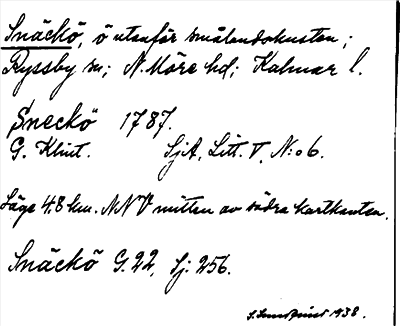 Snäckö, ö utanför smålandskusten;
Ryssby sn; N. Möre hd; Kalmar l.
Sneckö 1787.
G. Klint. SjA, Litt. V, N:o 6.
Läge 4.8 km. NNV mitten av södra kartkanten.
Snäckö G.22, Sj: 256.
1938.